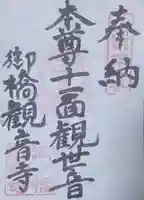 奉納
本尊十一面観世音
御橋観音寺